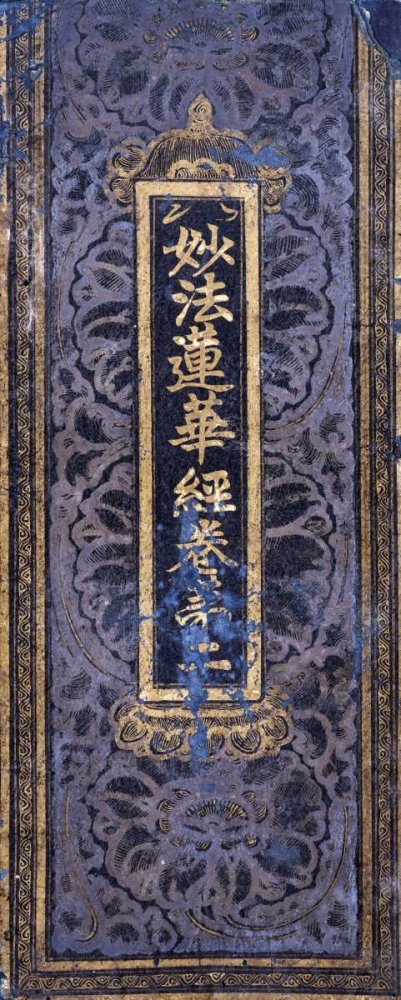 妙法蓮華經卷第二